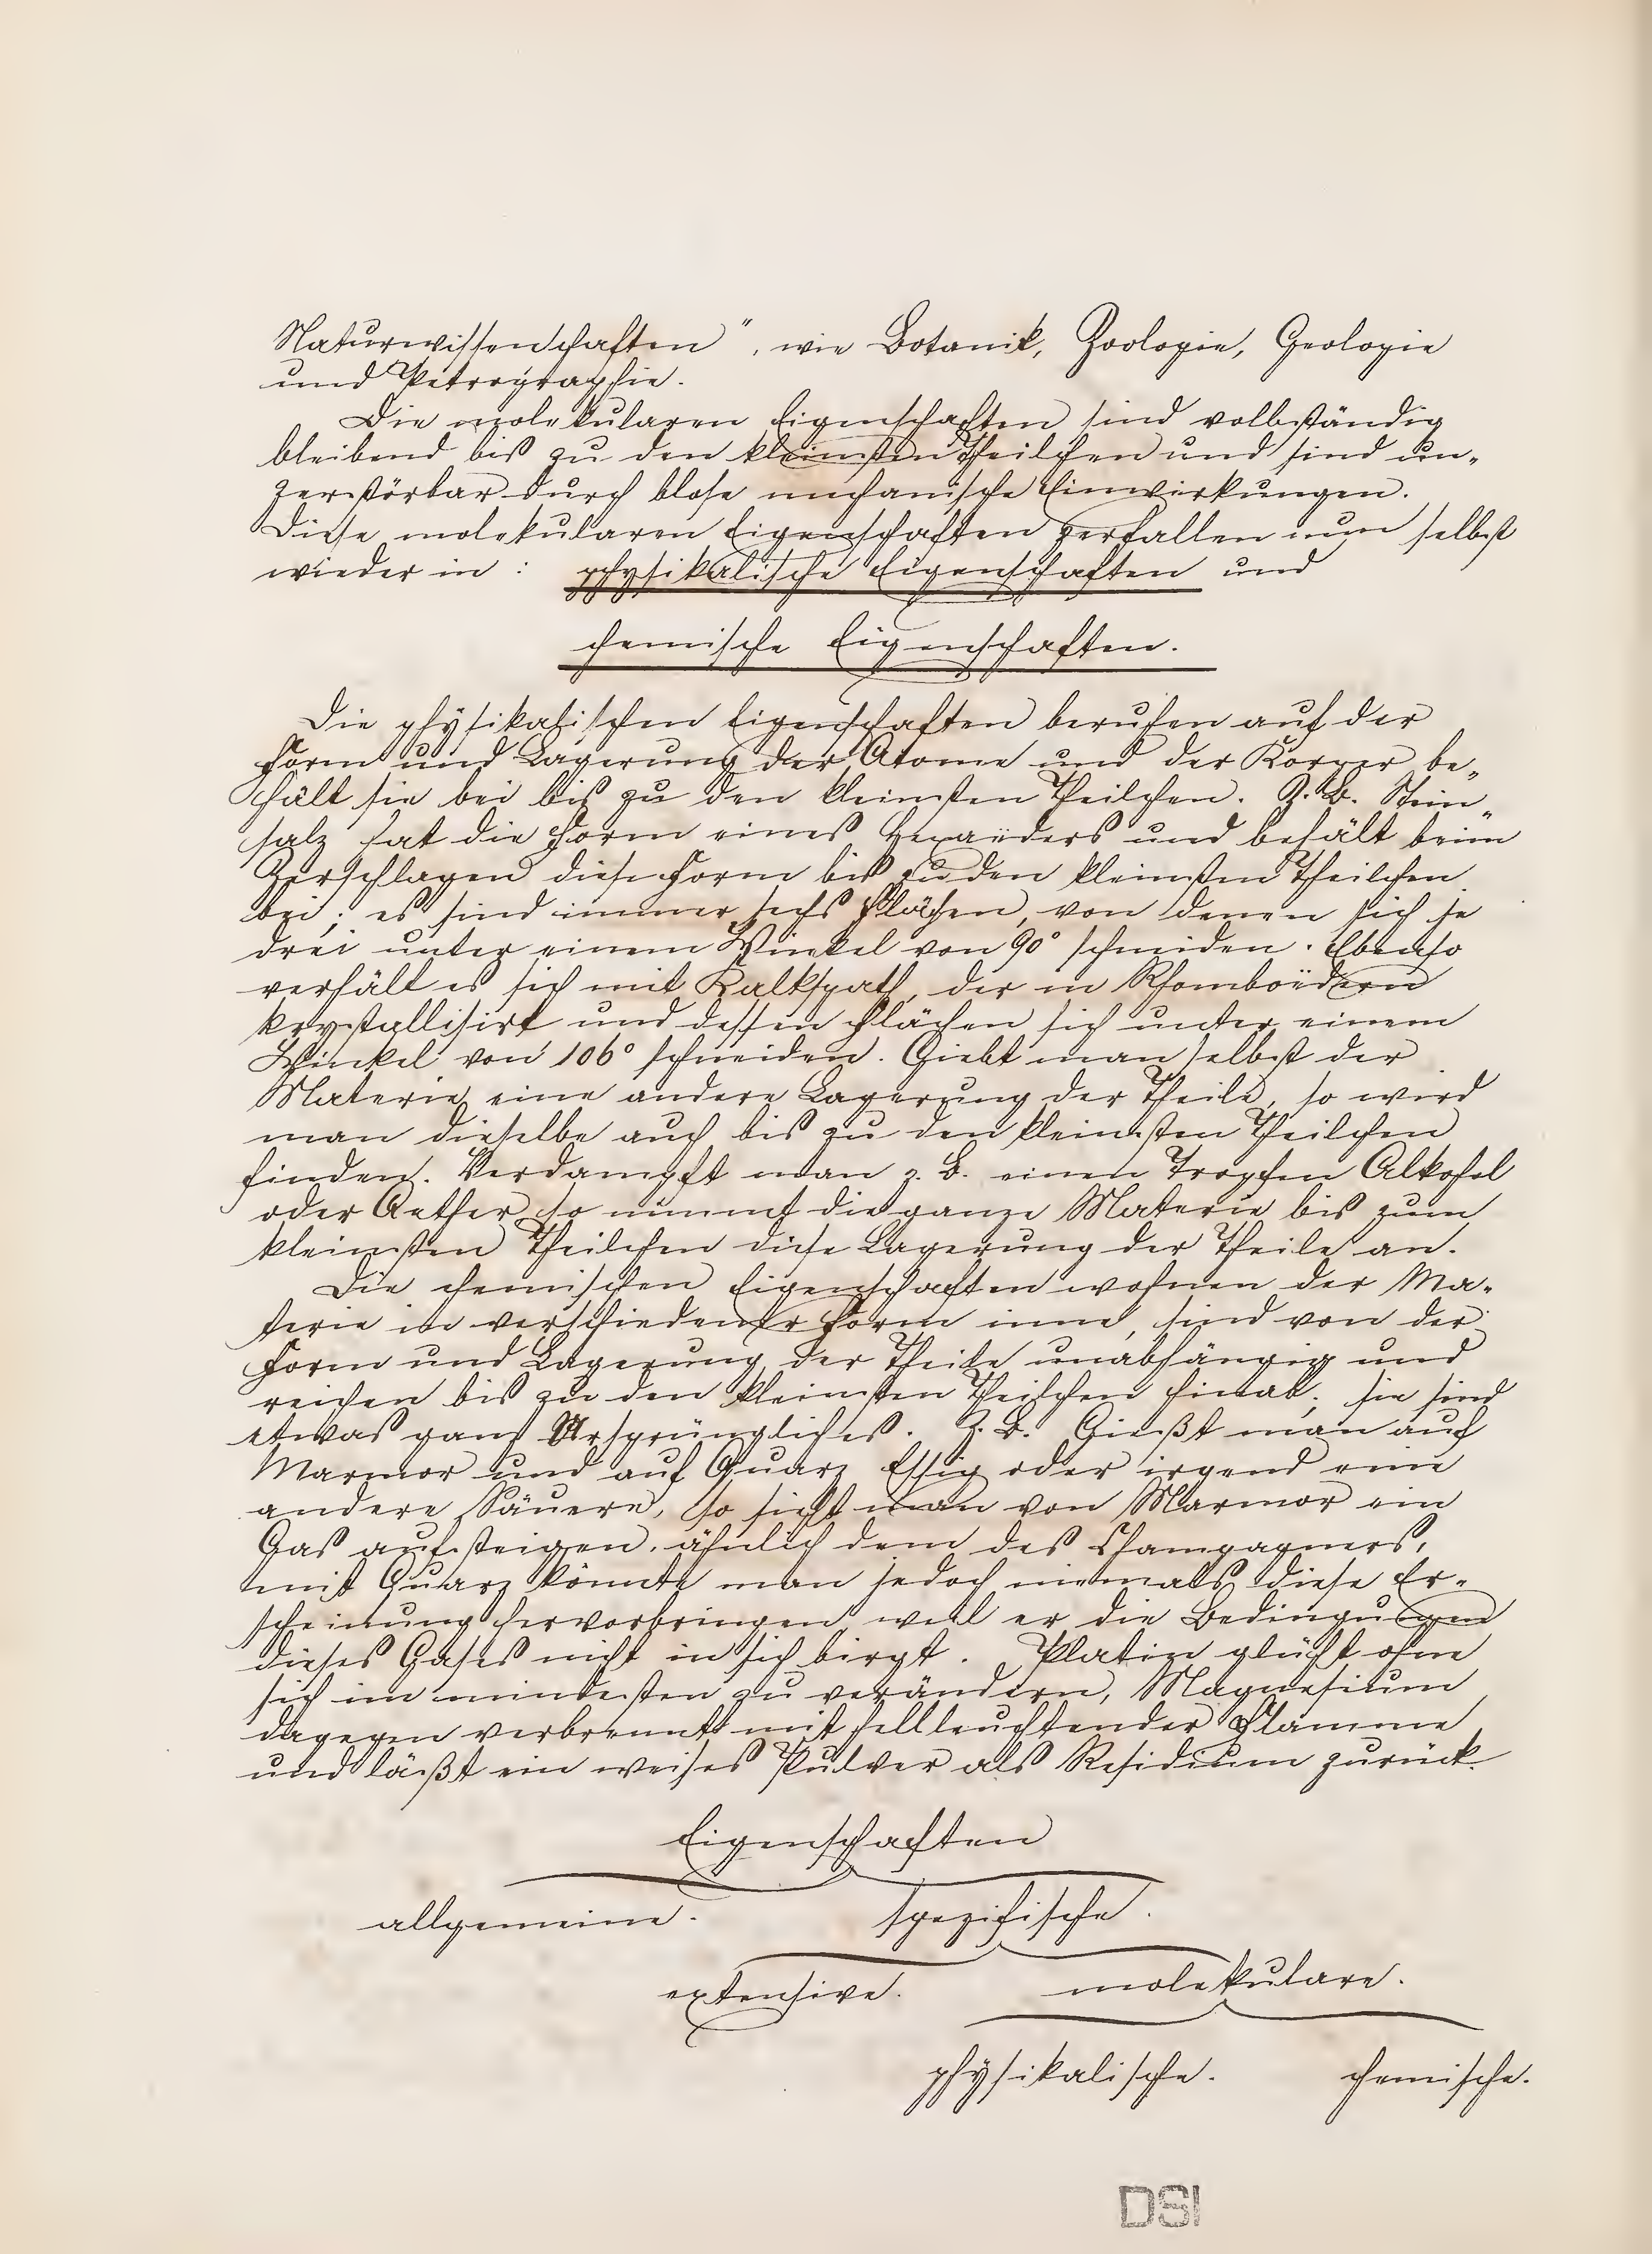 Naturwissenschaften", wie Botanik, Zoologie, Geologie
und Petrographie.
Die molekularen Eigenschaften sind vollständig
bleibend bis zu den kleinsten Theilchen und sind un-
zerstörbar durch blose mechanische Einwirkungen.
Diese molekularen Eigenschaften zerfallen nun selbst
wieder in : physikalische Eigenschaften und
chemische Eigenschaften.
Die physikalischen Eigenschaften beruhen auf der
Form und Lagerung der Atome und der Körper be-
hält sie bei bis zu den kleinsten Theilchen. Z. B. Stein-
salz hat die Form eines Hexaëders und behält beim
Zerschlagen diese Form bis zu den kleinsten Theilchen
bei; es sind immer sechs Flächen, von denen sich je
drei unter einem Winkel von 90° schneiden. Ebenso
verhält es sich mit Kalkspath, der in Rhomboëdern
krystallisirt und dessen Flächen sich unter einem
Winkel von 106° schneiden. Giebt man selbst der
Materie eine andere Lagerung der Theile, so wird
man dieselbe auch bis zu den kleinsten Theilchen
finden. Verdampft man z. B. einen Tropfen Alkohol
oder Aether, so nimmt die ganze Materie bis zum
kleinsten Theilchen diese Lagerung der Theile an.
Die chemischen Eigenschaften wohnen der Ma-
terie in verschiedener Form inne, sind von der
Form und Lagerung der Theile unabhängig und
reichen bis zu den kleinsten Theilchen hinab; sie sind
etwas ganz Ursprüngliches. Z. B. Gießt man auf
Marmor und auf Quarz Essig oder irgend eine
andere Säuere, so sieht man von Marmor ein
Gas aufsteigen, ähnlich dem des Champagners,
mit Quarz könnte man jedoch niemals diese Er-
scheinung hervorbringen, weil er die Bedingungen
dieses Gases nicht in sich birgt. Platin glüht ohne
sich im mindesten zu verändern, Magnesium
dagegen verbrennt mit hellleuchtender Flamme
und läßt ein weises Pulver als Residium zurück.
Eigenschaften
allgemeine. spezifische.
extensive. molekulare.
physikalische. chemische.
DSI